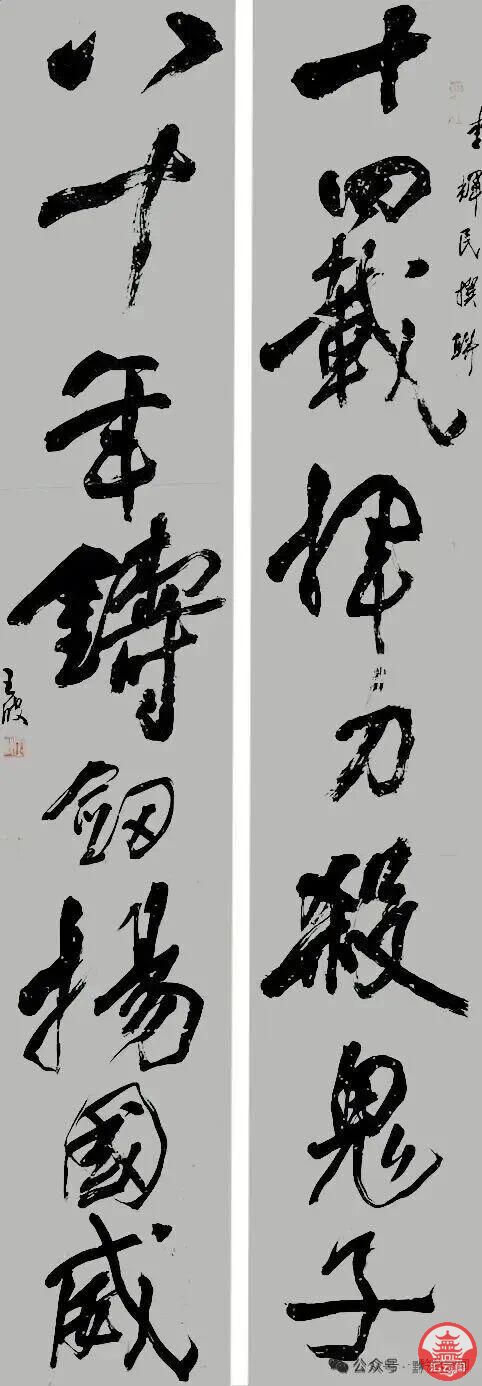 李輝民撰聯
十四載揮刀殺鬼子
八十年鑄劔揚國威
王
公众号·黔